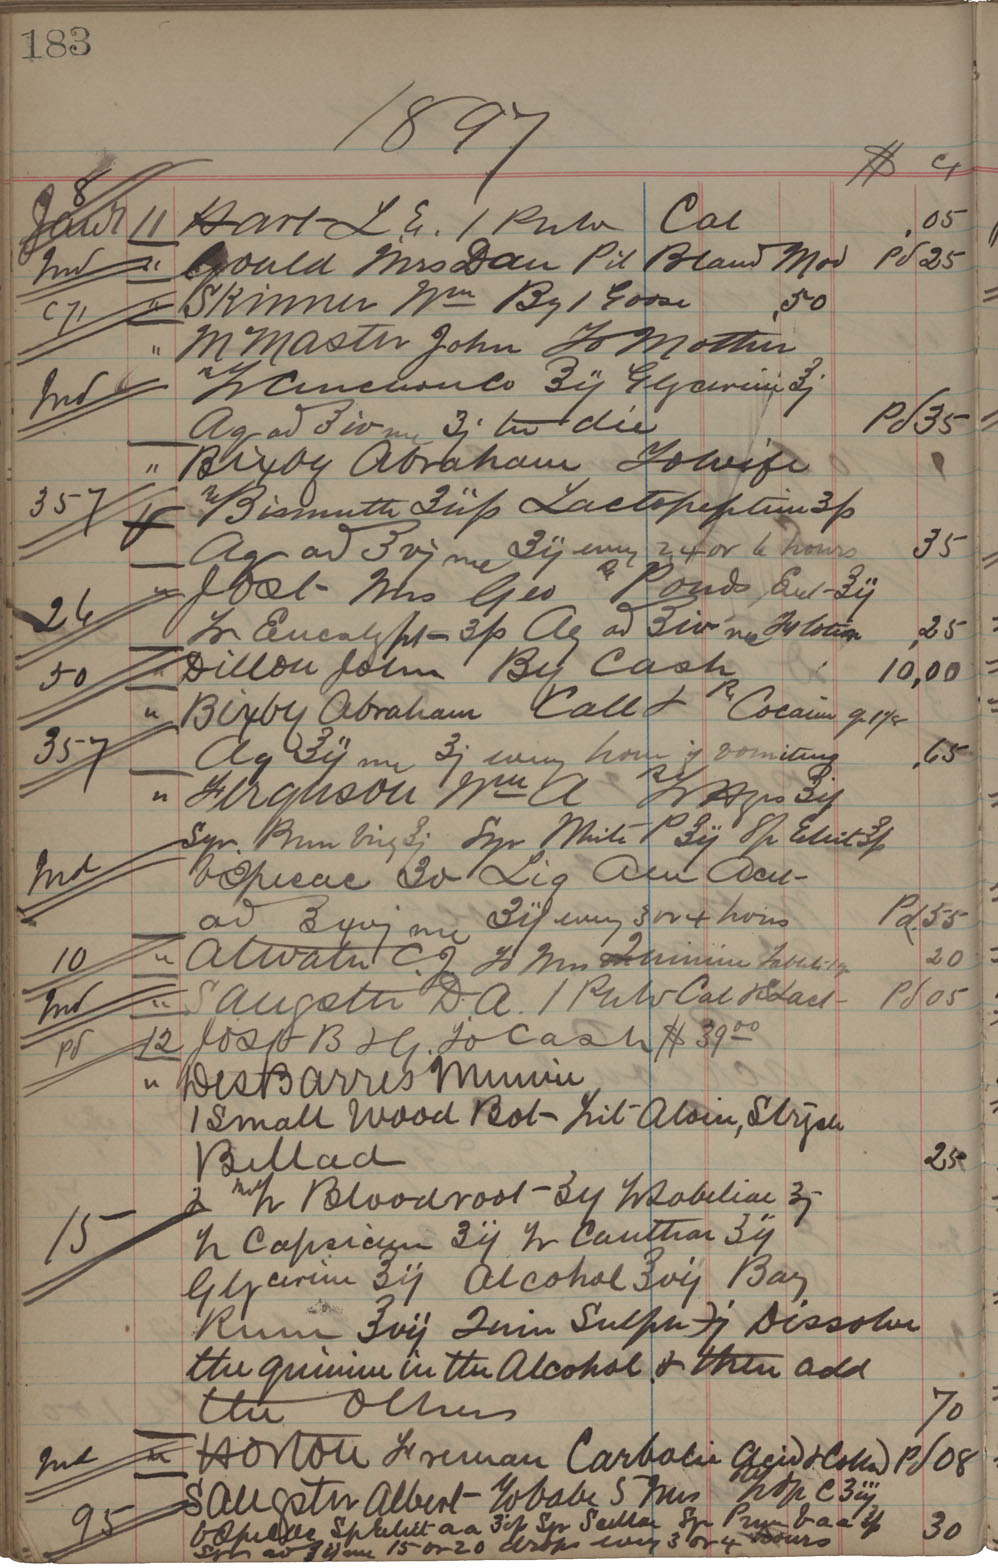 183
1897
$ ct
8
Jan 11 Hart L E. 1 Pulv Cal .05
Ind " Gould Mrs Dan Pil Bland Mod Pd 25
C71 " Skinner Wm By 1 Goose .50
" McMaster John To Mother
Ind Tr Cinchon Co ʒij Glycerini ʒj
Aq ad ℥iv me ʒj ter die Pd 35
" Bixby Abraham To wife
357 Bismuth ʒiiss Lactopeptin ʒss
Aq ad ℥vj me ʒij every 2 4 or 6 hours 35
" Jost Mrs Geo ℞ Ponds Ext ʒij
26 Tr Eucalypt ʒss Aq ad ℥iv me lotion .25
50 " Dillon John By Cash 10,00
" Bixby Abraham Call & ℞ Cocain
357 Aq ℥ij me ʒj every hour if vomiting .65
" Ferguson Wm A ℞ Tr Hyos ʒij
Syr. Prun Virg ℥j Syr White P ℥ij
Ind Ipecac Liq Am Acet
ad me ʒij every 3 or 4 hours Pd .55
10 " Atwater C. J To Mrs Quinine 20
Ind " Sangster D. A. 1 Pulv Cal & Lact Pd 05
pd 12 Jost B & G. To Cash $ 39 00
" DesBarres Minnie
1 Small Wood Bot Aloin, Strych
Bellad 25
Tr Bloodroot ʒij Tr Lobeliae ʒj
15 Tr Capsicum ʒij Tr Canthar ʒij
Glycerine ʒij Alcohol Bay
Rum Quin Sulph Dissolve
the quinine in the Alcohol & then add
the others 70
Ind " Horton Freeman Carbolic Acid Pd 08
95 Sangster Albert To babe 5 Mos
Ipecac Syr Scillae Syr Prun V a a 30
Syr ad me 15 or 20 drops every 3 or 4 hours